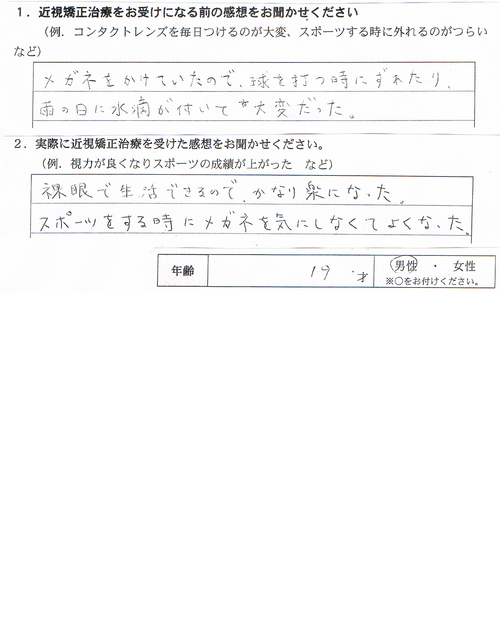 １．近視矯正治療をお受けになる前の感想をお聞かせください
（例．コンタクトレンズを毎日つけるのが大変、スポーツする時に外れるのがつらい
など）
メガネをかけていたので、球を打つ時にずれたり、
雨の日に水滴が付いて大変だった。
２．実際に近視矯正治療を受けた感想をお聞かせください。
（例．視力が良くなりスポーツの成績が上がった　など）
裸眼で生活できるので、かなり楽になった。
スポーツをする時にメガネを気にしなくてよくなった。
年齢　19　才　男性　・　女性
※○をお付けください。